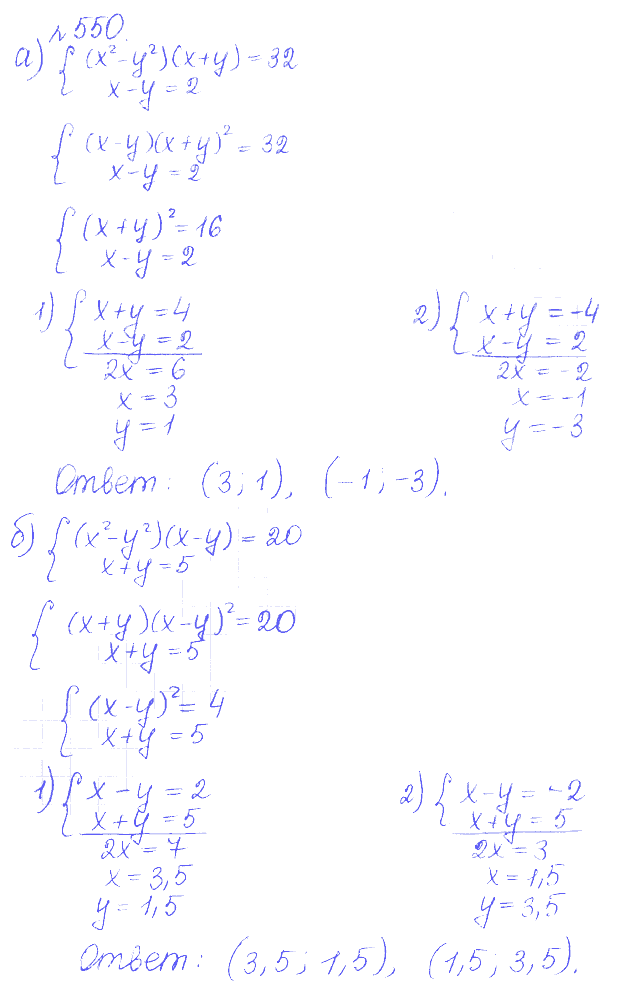 №550.
а) { (x²-y²)(x+y)=32
x-y=2
{ (x-y)(x+y)²=32
x-y=2
{ (x+y)²=16
x-y=2
1) { x+y=4
x-y=2
2x=6
x=3
y=1
2) { x+y=-4
x-y=2
2x=-2
x=-1
y=-3
Ответ: (3;1), (-1;-3).
б) { (x²-y²)(x-y)=20
x+y=5
{ (x+y)(x-y)²=20
x+y=5
{ (x-y)²=4
x+y=5
1) { x-y=2
x+y=5
2x=7
x=3,5
y=1,5
2) { x-y=-2
x+y=5
2x=3
x=1,5
y=3,5
Ответ: (3,5;1,5), (1,5;3,5).